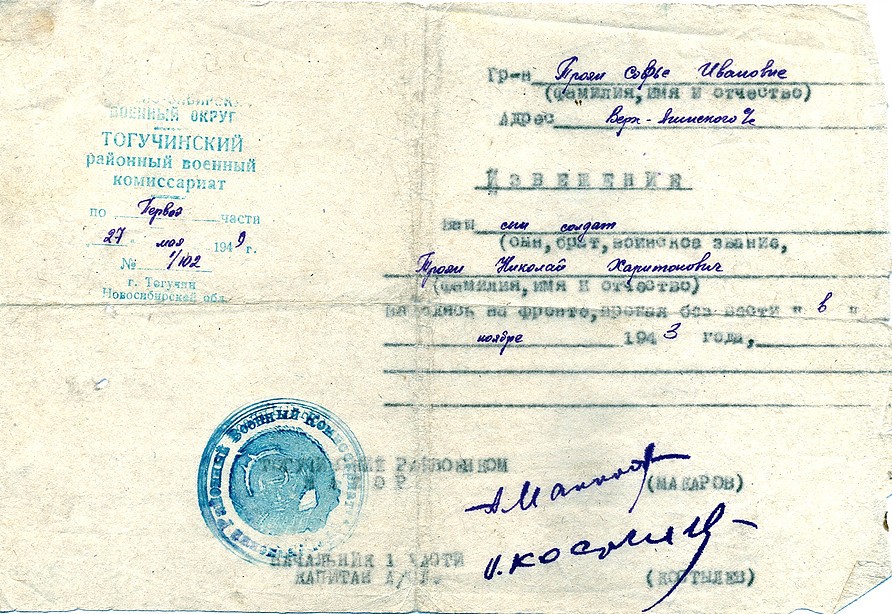 ВОЕННЫЙ ОКРУГ
ТОГУЧИНСКИЙ
районный военный
комиссариат
по Первой части
"27" мая 1949 г.
№ 1/102
г. Тогучин
Новосибирской обл.
Гр-н Троян Софье Ивановне
(фамилия, имя и отчество)
Адрес
ИЗВЕЩЕНИЕ
Ваш сын солдат
(сын, брат, воинское звание,
Троян Николай Харитонович
(фамилия, имя и отчество)
находясь на фронте, пропал без вести " в "
ноябре 1943 года,
ТОГУЧИНСКИЙ РАЙВОЕНКОМ
МАЙОР
(МАКАРОВ)
НАЧАЛЬНИК 1 ЧАСТИ
КАПИТАН А/СЛ.
(КОСТЫЛЕВ)
Районный Военный Комиссариат